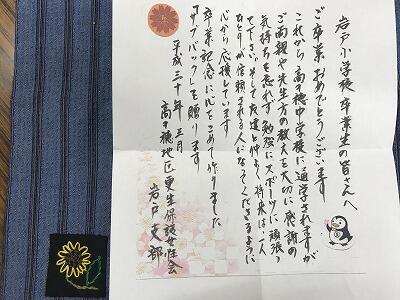 岩戸小学校 卒業生の皆さんへ
ご卒業 おめでとうございます
これから 高千穂中学校に通学されますが
ご両親や先生方の教えを大切に感謝の
気持ちを忘れず勉強にスポーツに頑張っ
て下さい そして友達と仲よく 将来は一人
ひとりが信頼される人になってくださるように
心から応援しています
卒業記念に心をこめて作りました
「サブバック」を贈ります
平成三十年 三月
高千穂地区更生保護女性会
岩戸支部